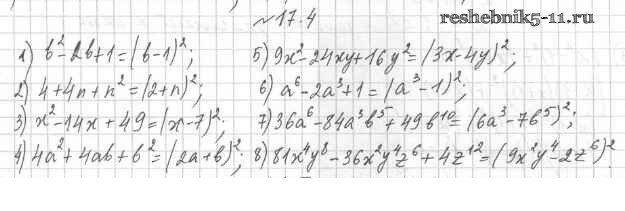 №17.4
reshebnik5-11.ru
1) b²-2b+1=(b-1)²;
2) 4+4n+n²=(2+n)²;
3) x²-14x+49=(x-7)²;
4) 4a²+4ab+b²=(2a+b)²;
5) 9x²-24xy+16y²=(3x-4y)²;
6) a⁶-2a³+1=(a³-1)²;
7) 36a⁶-84a³b⁵+49b¹⁰=(6a³-7b⁵)²;
8) 81x⁴y⁸-36x²y⁴z⁶+4z¹²=(9x²y⁴-2z⁶)²